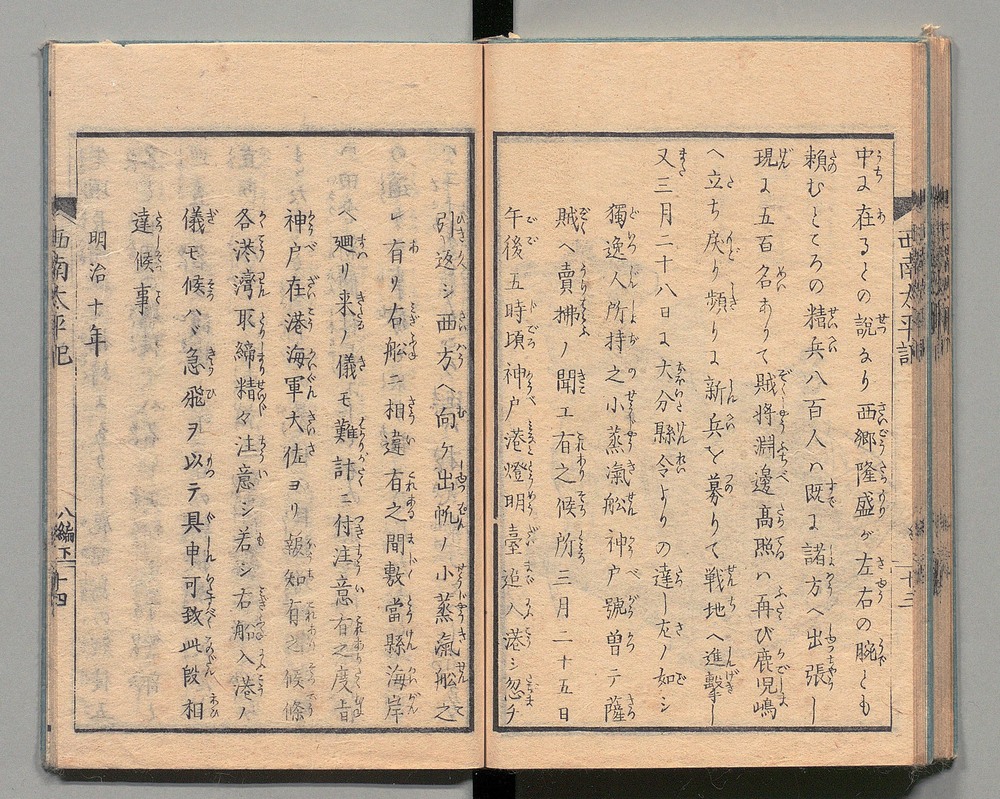 中に在るとの説あり西郷隆盛が左右の腕とも
頼むところの精兵八百人ハ既に諸方へ出張し
現に五百名ありて賊将淵邊髙照ハ再び鹿児嶋
へ立ち戻り頻りに新兵を募りて戦地へ進撃し
又三月二十八日に大分縣令よりの達し左ノ如シ
獨逸人所持之小蒸氣舩神戸號曽テ薩
賊ヘ賣拂ノ聞エ有之候所三月二十五日
午後五時頃神戸港燈明臺迠入港シ忽チ
引返シ西方ヘ向ケ出帆ノ小蒸氣舩之
レ有リ右舩ニ相違有之間敷當縣海岸
ヘ廻リ来ノ儀モ難計ニ付注意有之度旨
神戸在港海軍大佐ヨリ報知有之候條
各港灣取締精々注意シ若シ右船入港ノ
儀モ候ハヾ急飛ヲ以テ具申可致此段相
達候事
明治十年
西南太平記
十三
西南太平記
八編下
十四